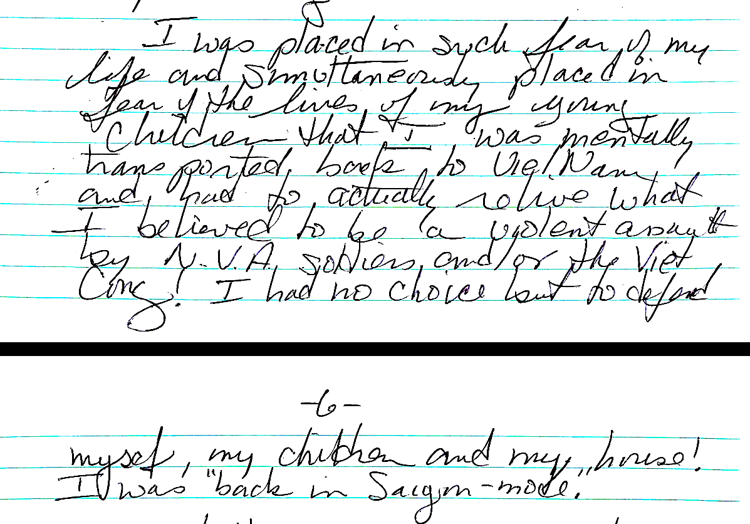 I was placed in such fear of my
life and simultaneously placed in
fear of the lives of my young
children that I was mentally
transported back to Viet Nam
and had to actually relive what
I believed to be a violent assault
by N.V.A. soldiers and/or the Viet
Cong! I had no choice but to defend
-6-
myself, my children and my house!
I was "back in Saigon-mode."